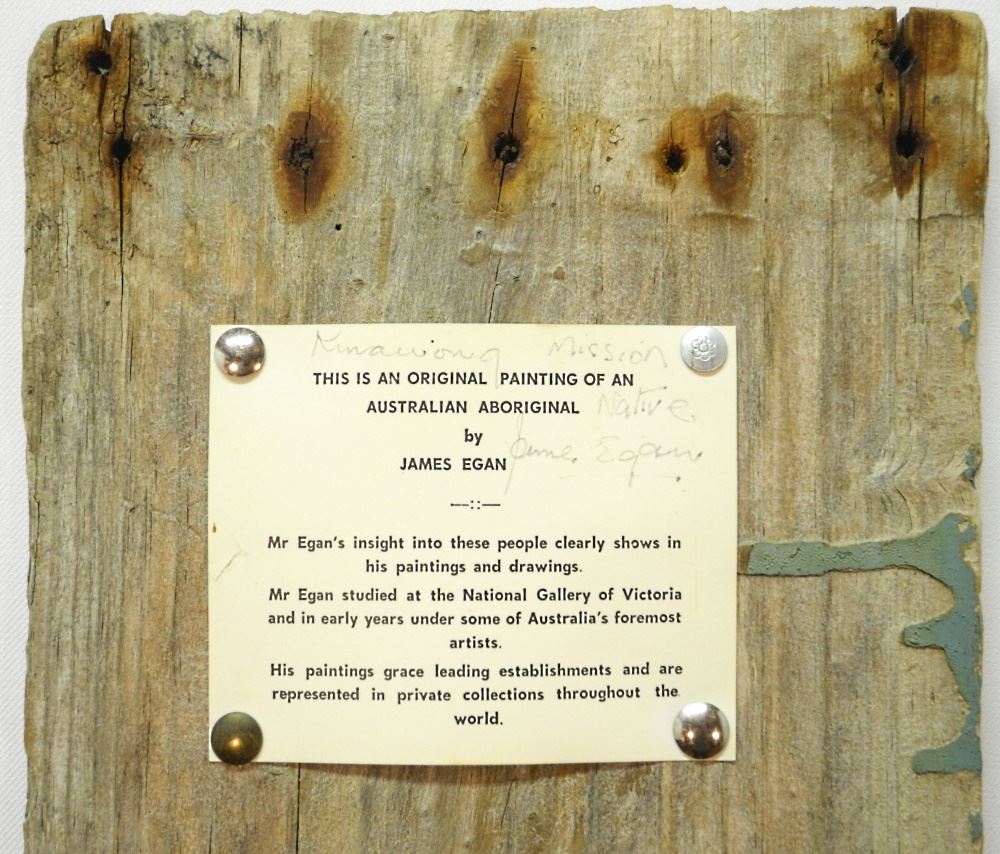 Mission
THIS IS AN ORIGINAL PAINTING OF AN
AUSTRALIAN ABORIGINAL Native
by
JAMES EGAN James Egan
—::—
Mr Egan's insight into these people clearly shows in
his paintings and drawings.
Mr Egan studied at the National Gallery of Victoria
and in early years under some of Australia's foremost
artists.
His paintings grace leading establishments and are
represented in private collections throughout the
world.